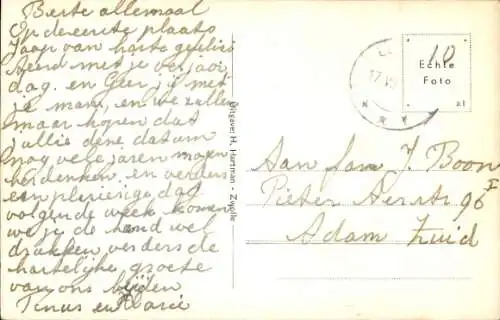 Beste allemaal
Op de eerste plaats
Jaap van harte gefelici
teerd met je verjaar
dag. en Geer jij met
je man, en we zullen
maar hopen dat
jullie deze datum
nog vele jaren mogen
herdenken. en verders
een plezierige dag
volgende week komen
we je de hand wel
drukken verders de
hartelijke groete
van ons beiden
Tinus en Marie
Uitgave: H. Hartman - Zwolle
10
Echte
Foto
17 VII
Aan fam J. Boon
Pieter Aertsstr 96 I
Adam Zuid